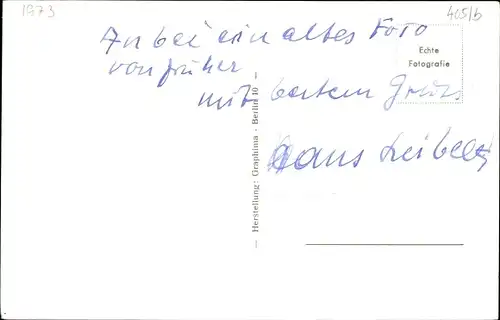 1973
465/b
Anbei ein altes Foto
von früher
mit bestem Gruß
Hans Leibelt
Echte
Fotografie
— Herstellung: Graphima · Berlin 10 —